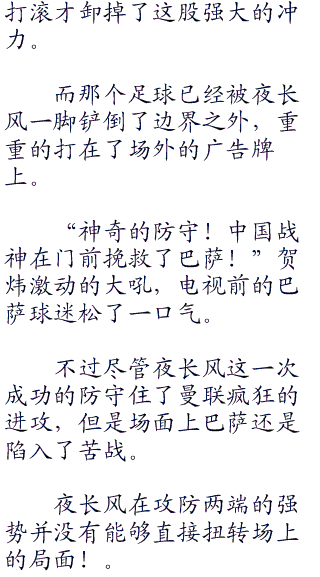 打滚才卸掉了这股强大的冲
力。
而那个足球已经被夜长
风一脚铲倒了边界之外，重
重的打在了场外的广告牌
上。
“神奇的防守！中国战
神在门前挽救了巴萨！”贺
炜激动的大吼，电视前的巴
萨球迷松了一口气。
不过尽管夜长风这一次
成功的防守住了曼联疯狂的
进攻，但是场面上巴萨还是
陷入了苦战。
夜长风在攻防两端的强
势并没有能够直接扭转场上
的局面！。